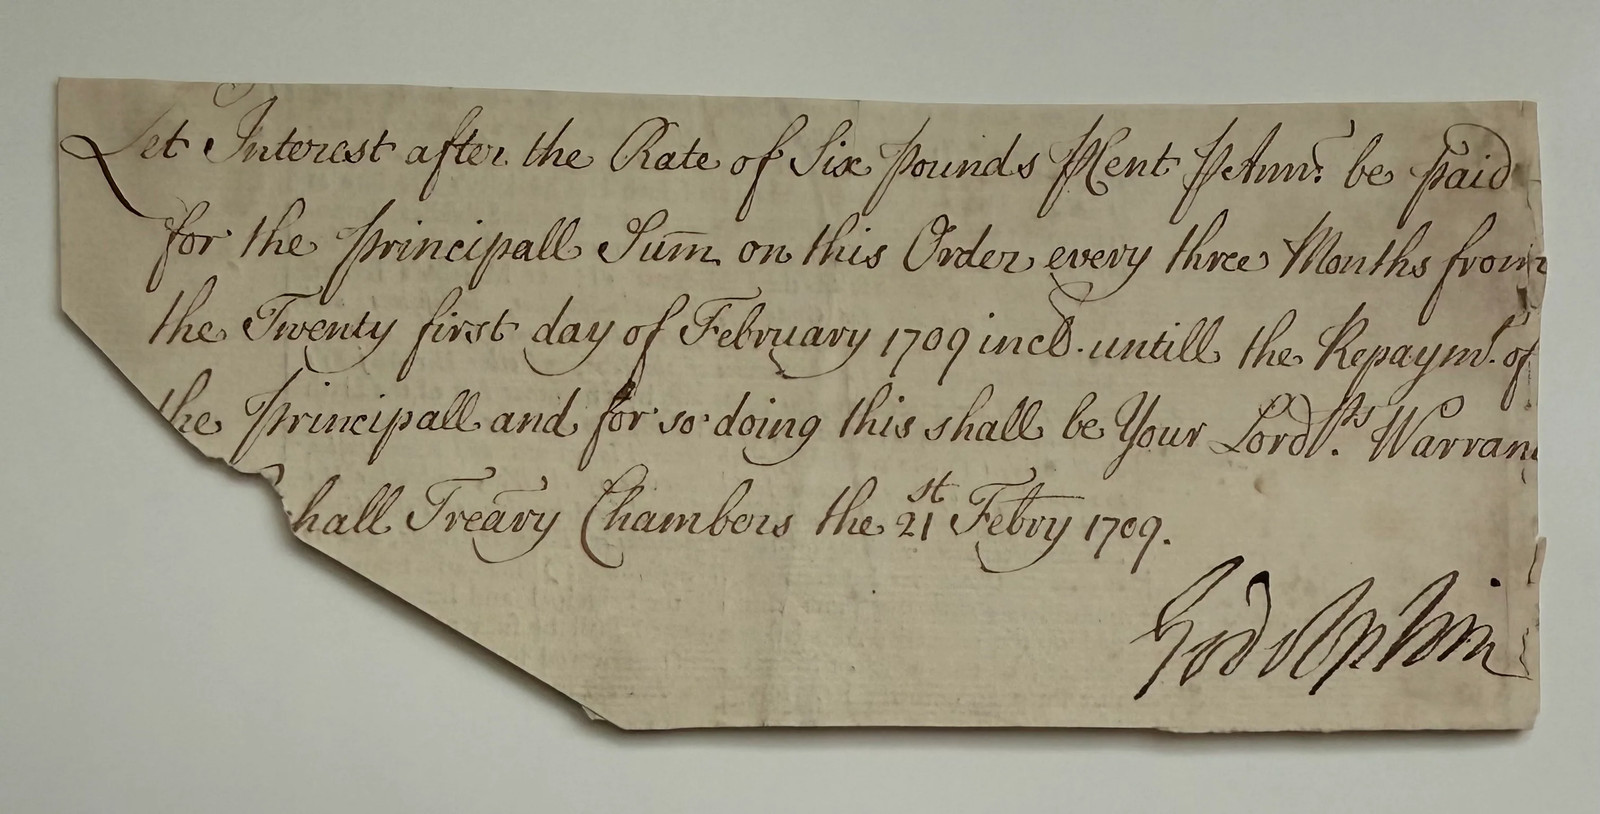 Let Interest after the Rate of Six pounds ꝑCent ꝑAnnᵐ: be paid
for the principall Sum̄ on this Order every three Months from
the Twenty first day of February 1709 incl͞d. untill the Repaymᵗ. of
the principall and for so doing this shall be Your Lordᵖˢ. Warran
hall Trea͠ry Chambers the 21ˢᵗ Febry 1709.
Godolphin